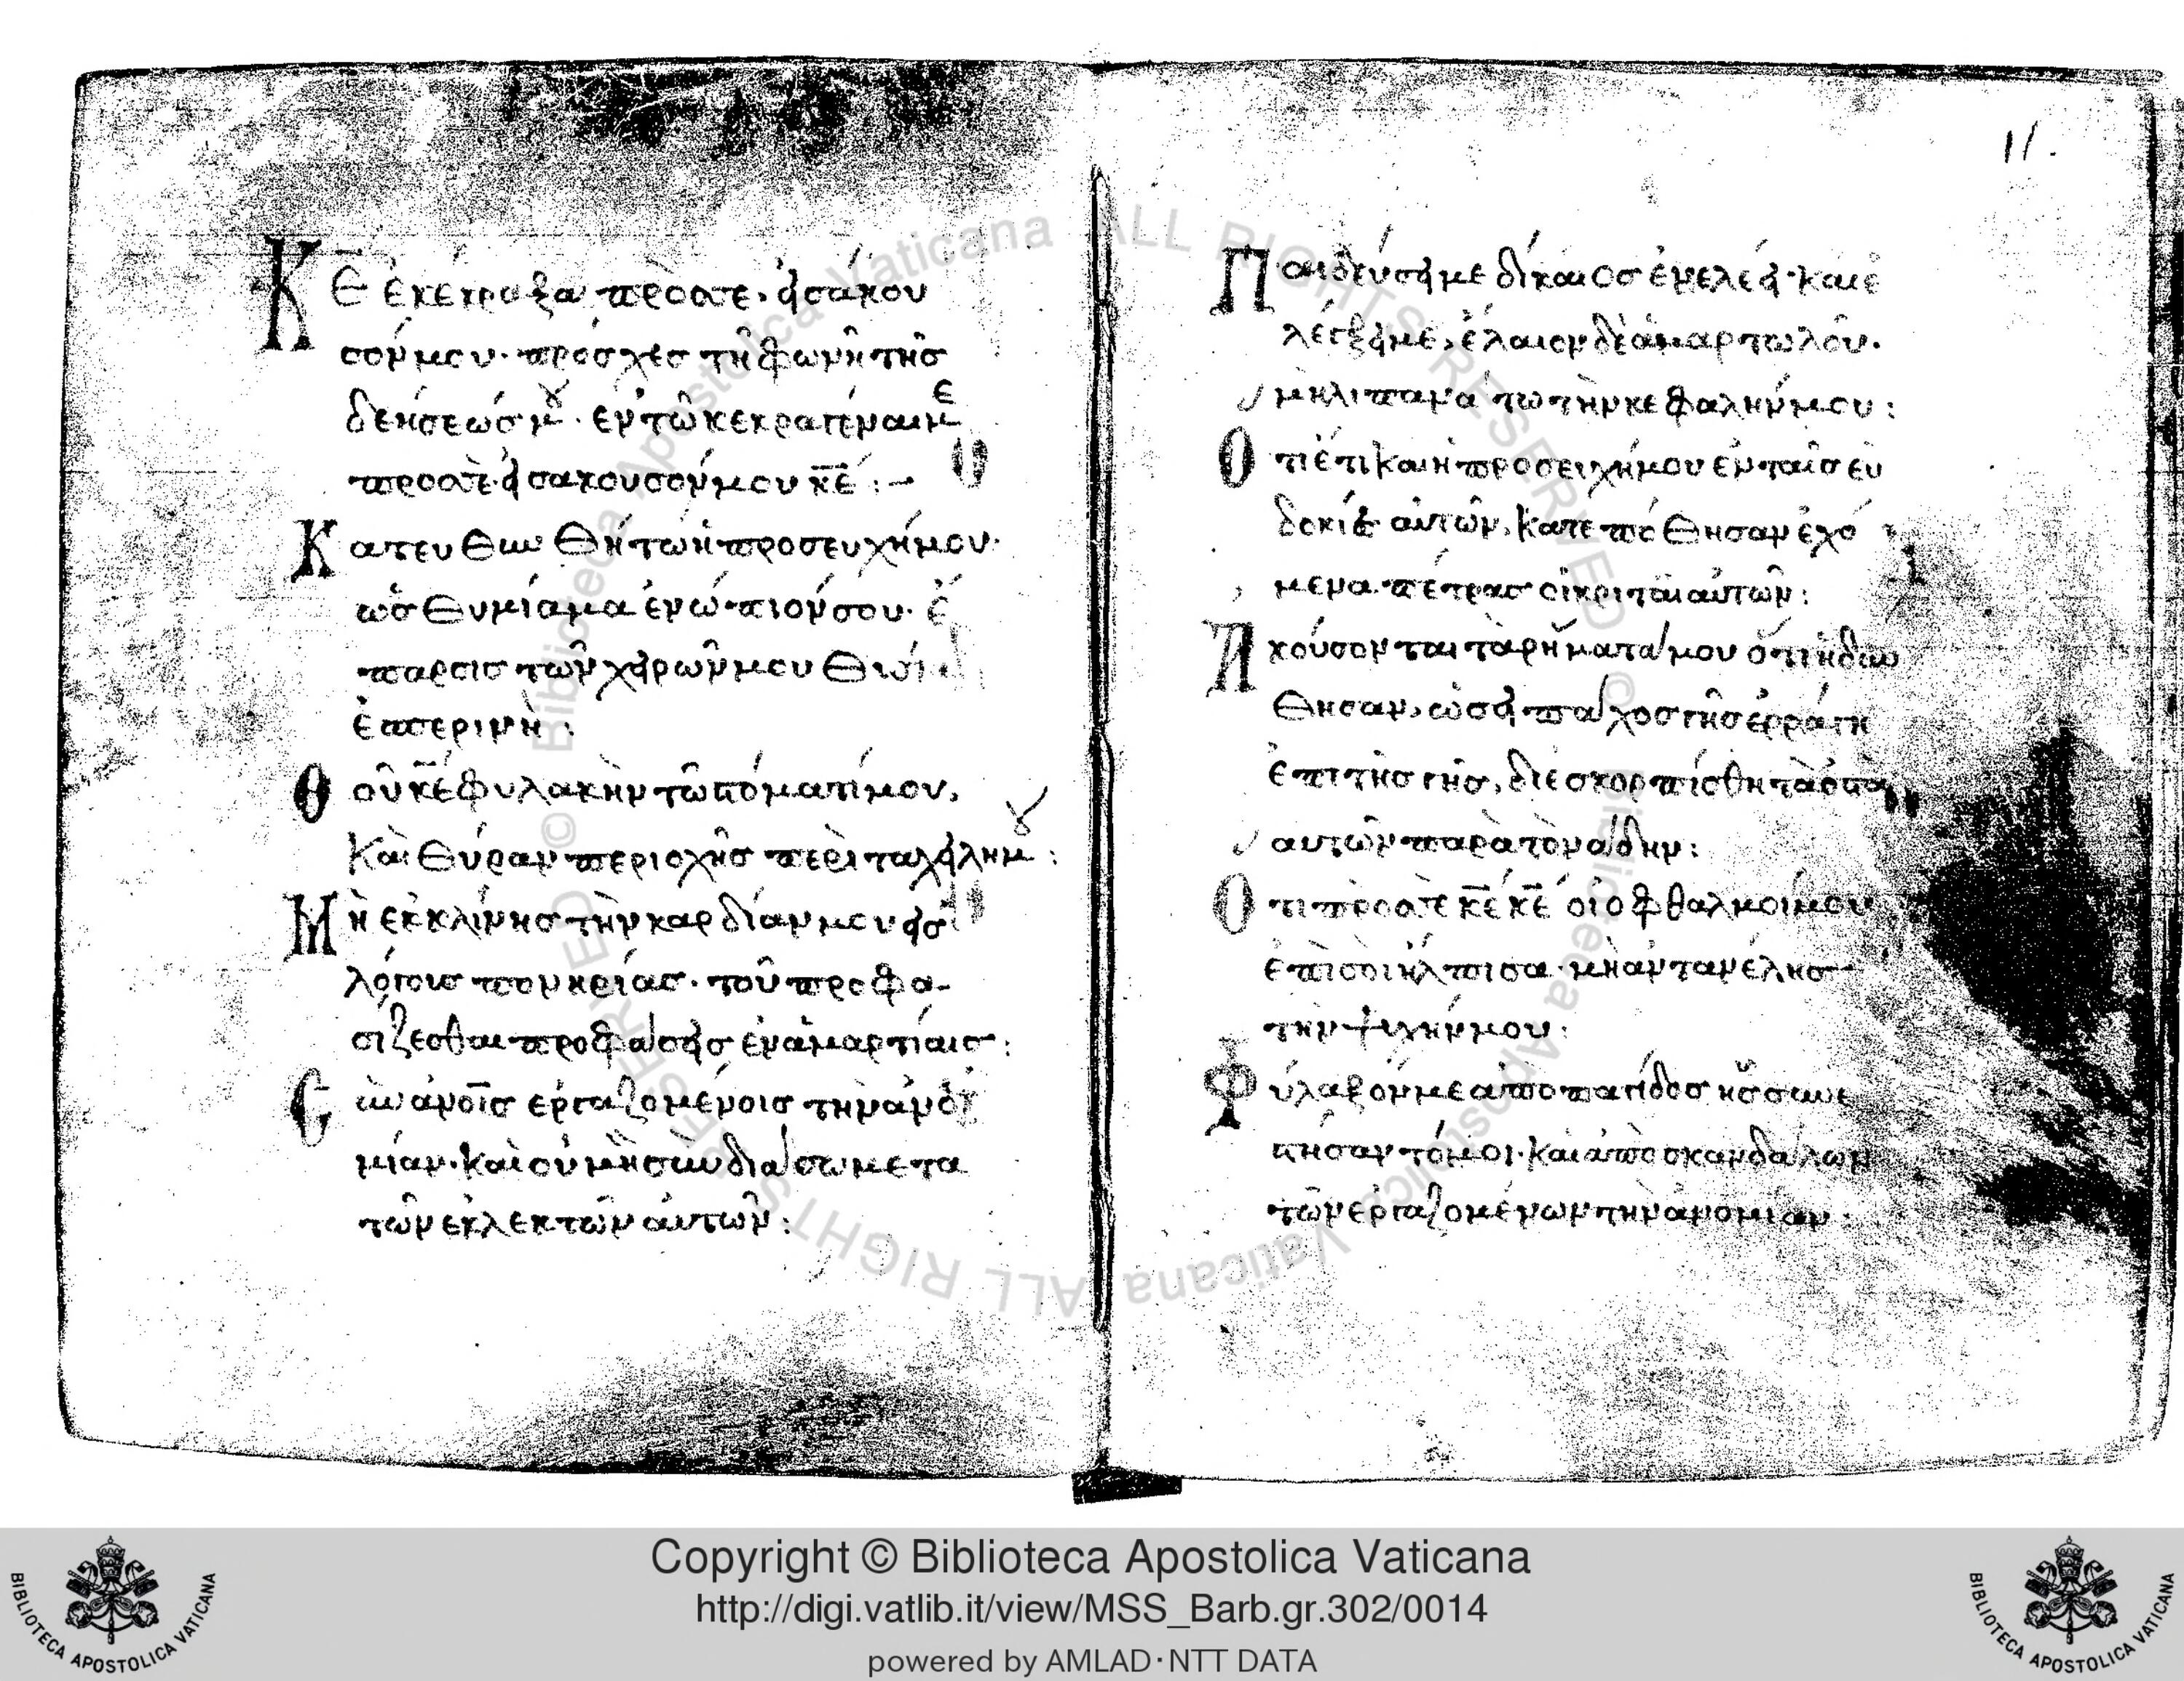 Κ̅Ε ἐκέκραξα πρὸσσε· εἰσάκου
σόν μου· πρόσχες τῆ φωνῆ τῆσ
δεήσεώσ μου· ἐν τῶ κεκραγέναι με
πρὸσσὲ· εἰσακουσόν μου κ̅ε̅ :-
Κατευθυνθήτω ἡ προσευχή μου·
ὡς θυμίαμα ἐνώπιόν σου· ἔ
παρσις τῶν χειρῶν μου θυσί
ἑσπερινὴ :
Θοῦ κ̅ε̅ φυλακὴν τῶ στόματί μου,
Καὶ θύραν περιοχῆσ περὶ τὰ χείλη μου :
Μὴ ἐκκλίνησ τὴν καρδίαν μου εἰσ
λόγουσ πονηρίας· τοῦ προφα-
σίζεσθαι προφάσεισ ἐν ἁμαρτίαισ :
Σὺν ἀν̅οῖσ ἐργαζομένοισ τὴν ἀνο
μίαν· καὶ οὐ μὴ συνδιάσω μετα
τῶν ἐκλεκτῶν αὐτῶν :
11.
Παιδεύσει με δίκαιοσ ἐν ἐλέει· καὶ ἐ
λέγξει με, ἔλαιον δὲ ἁμαρτωλοῦ·
μὴ λιπανάτω τὴν κεφαλήν μου :
Ὅτι ἔτι καὶ ἡ προσειχή μου ἐν ταῖσ ευ
δοκίαις αὐτῶν, κατεπόθησαν ἐχό
μενα πέτρασ οἱ κριταὶ αὐτῶν :
Ἀκούσονται τὰ ρήματά μου ὅτι ἡδύν
θησαν, ὡσεὶ πάχοσ γῆσ ἐρράγη
ἐπι τῆσ γῆσ, διεσκορπίσθη τὰ ὀστᾶ
αὐτῶν παρὰ τὸν ἅδην :
Ὅτι πρὸσσὲ κ̅ε̅ κ̅ε̅ οἱ ὀφθαλμοί μου
ἐπὶ σοὶ ἤλπισα· μὴ ἀντανέλησ
τὴν ψυχήν μου :
Φύλαξόν με ἀπο παγίδοσ ἧσ συνε
στήσαντό μοι· καὶ ἀπὸ σκανδάλων
τῶν ἐργαζομένων τὴν ἀνομίαν :
Copyright © Biblioteca Apostolica Vaticana
http://digi.vatlib.it/view/MSS_Barb.gr.302/0014
powered by AMLAD·NTT DATA
BIBLIOTECA APOSTOLICA VATICANA
BIBLIOTECA APOSTOLICA VATICANA